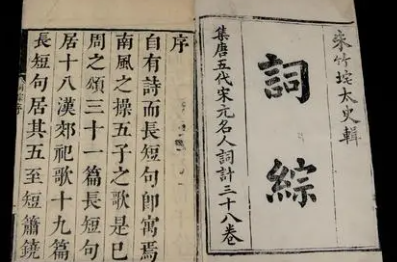 朱竹垞太史輯
詞綜
集唐五代宋元名人詞計三十八卷
序
自有詩而長短句即寓焉
南風之操五子之歌是已
周之頌三十一篇長短句
居十八漢郊祀歌十九篇
長短句居其五至短簫鐃